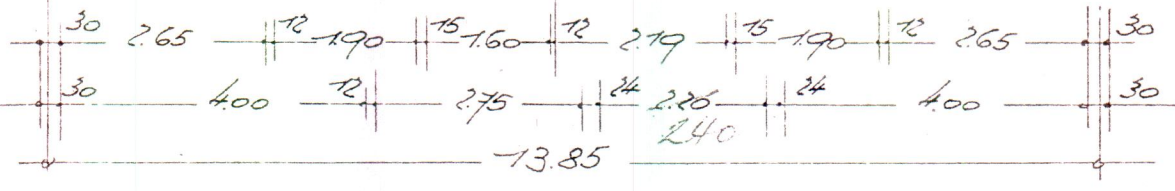 30 2.65 12 1.90 15 1.60 12 2.19 15 1.90 12 2.65 30
30 4.00 12 2.75 24 2.26 24 4.00 30
2.40
13.85